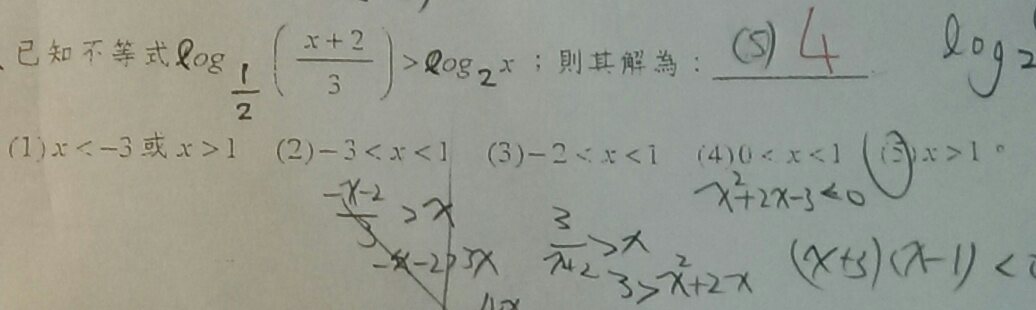 、已知不等式log_{1/2}((x+2)/3)>log₂x；則其解為：(5) 4 log₂
(1)x<-3或x>1 (2)-3<x<1 (3)-2<x<1 (4)0<x<1 (5)x>1。
(-x-2)/3>x
-x-2>3x
4x
3/(x+2)>x
3>x²+2x
x²+2x-3<0
(x+3)(x-1)<0